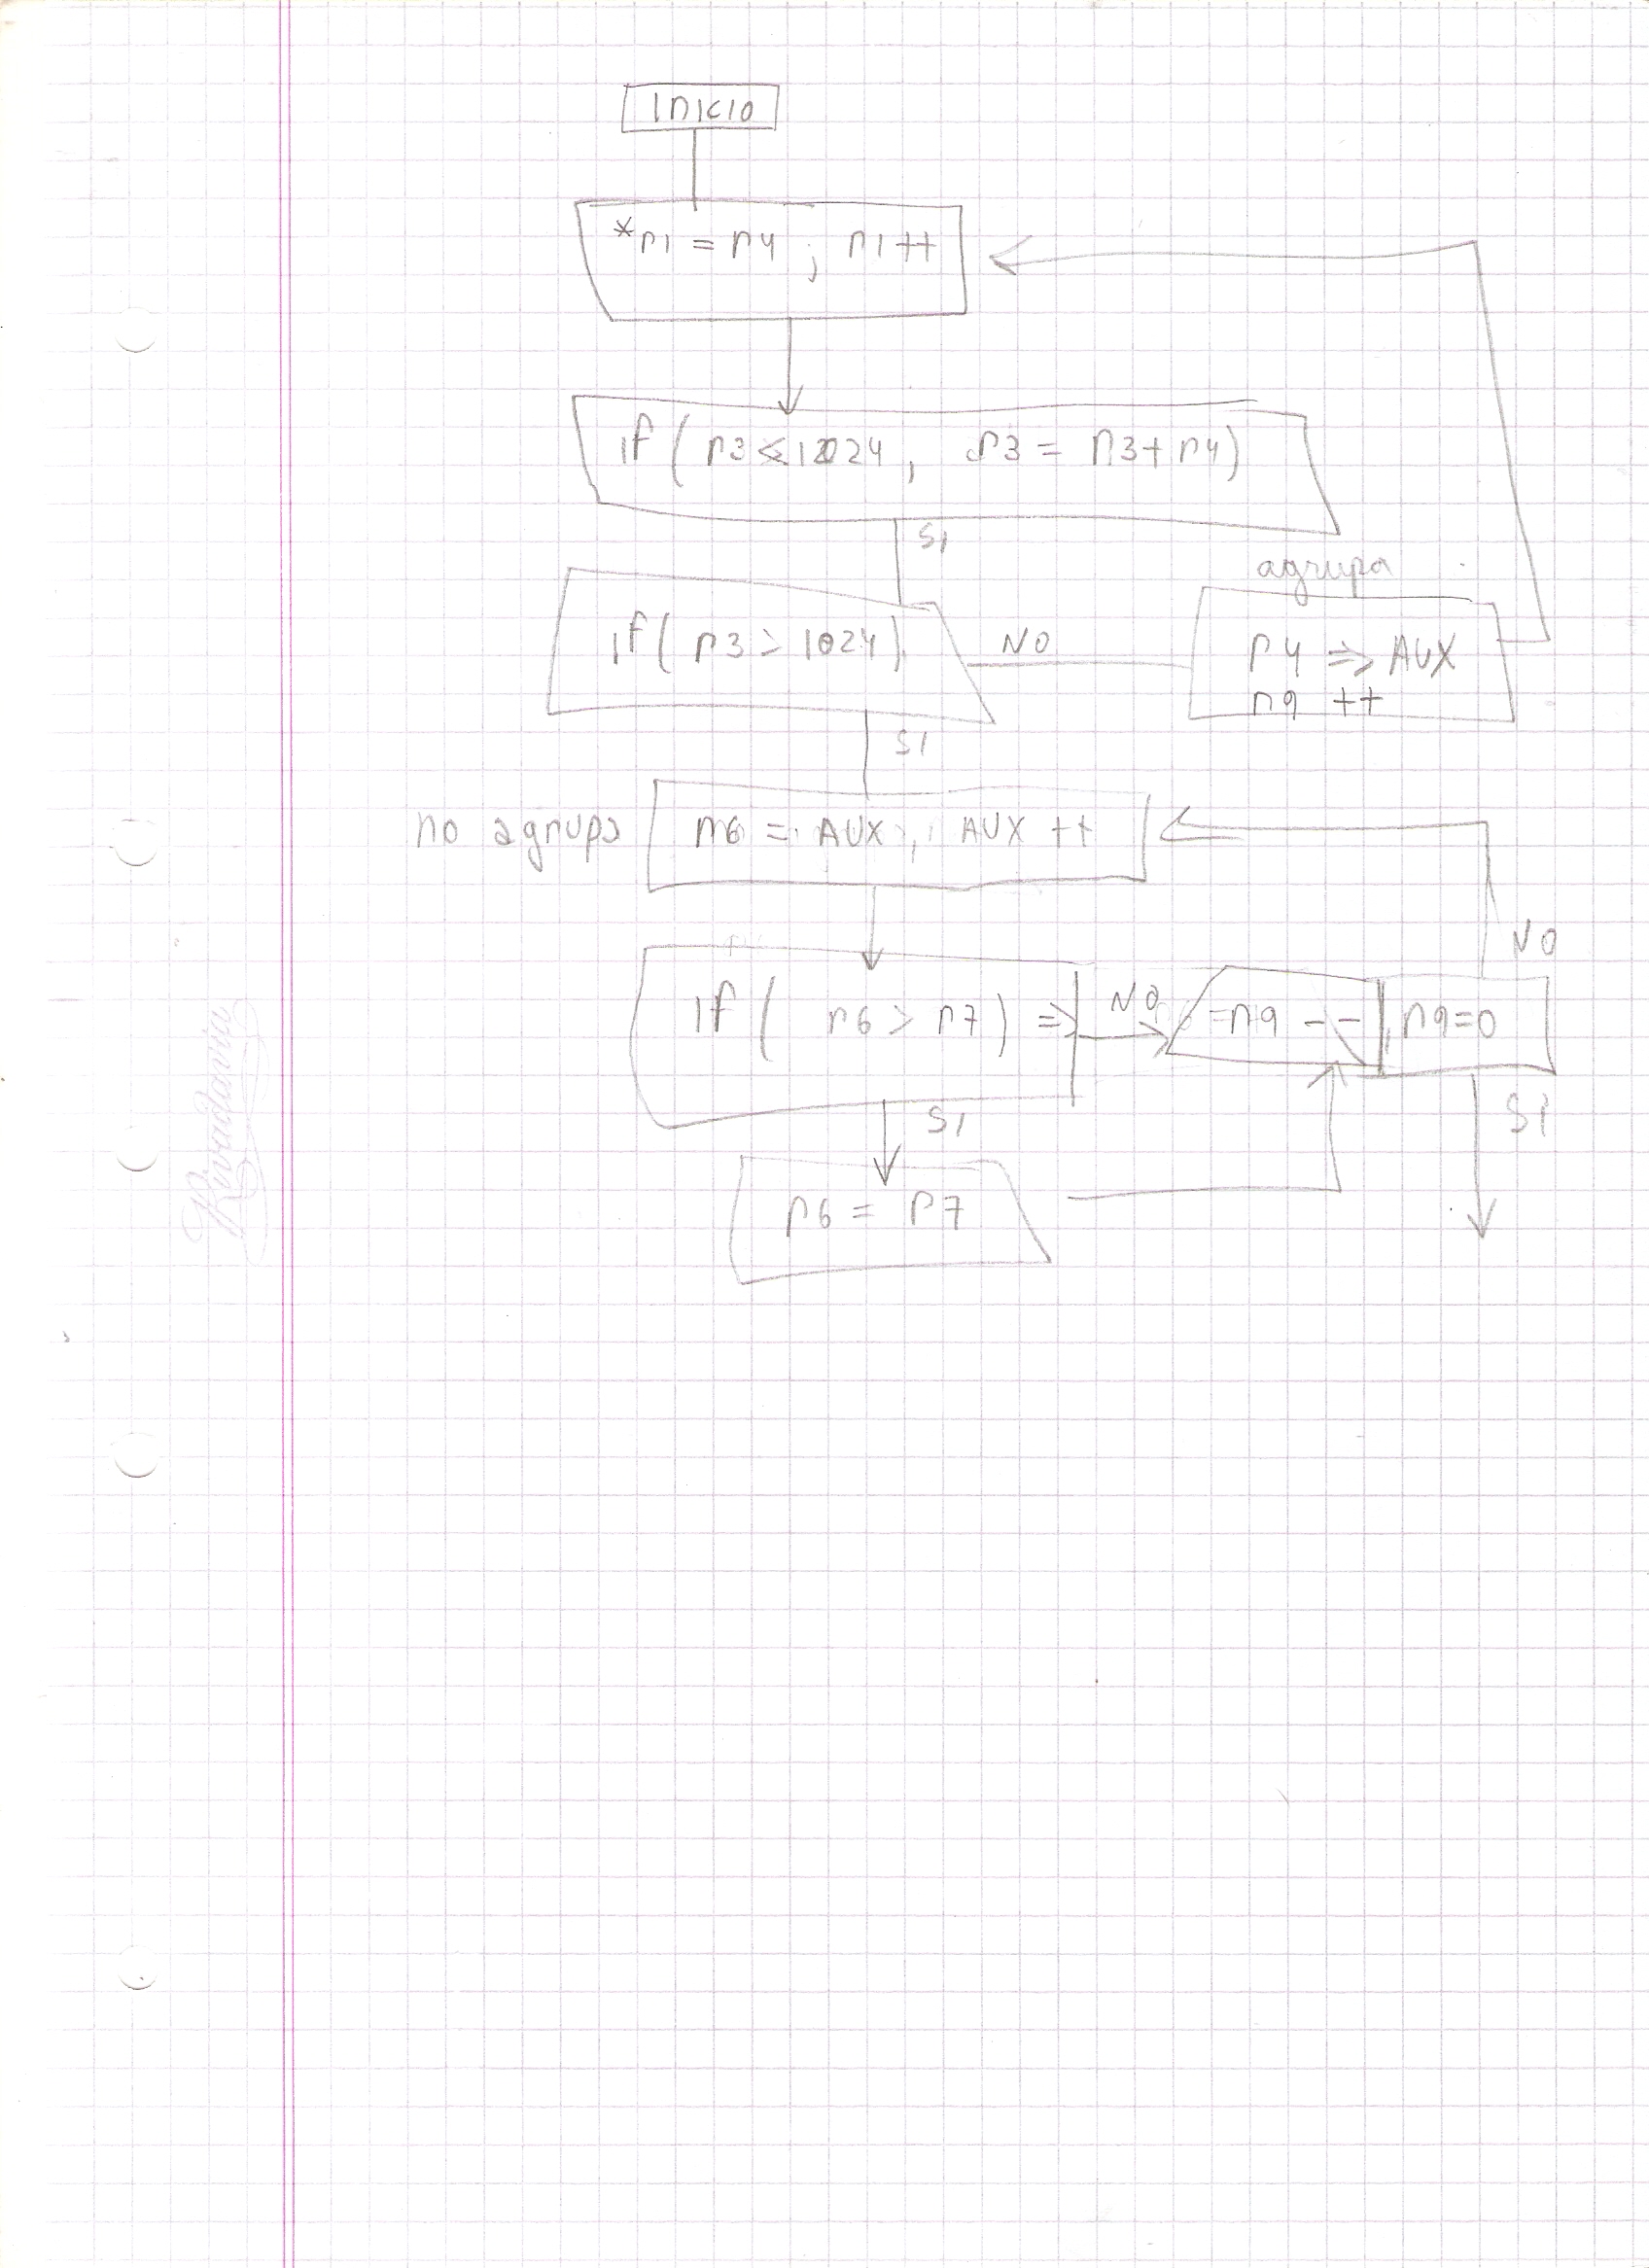 INICIO
*r1 = r4 ; r1++
if ( r3 ≤ 1024 , r3 = r3+r4)
SI
agrupa
if ( r3 > 1024)
NO
r4 => AUX
r9 ++
SI
no agrupa
r6 = AUX , AUX ++
NO
if ( r6 > r7) =>
NO
r9 --
r9=0
SI
SI
r6 = r7
Rivadavia